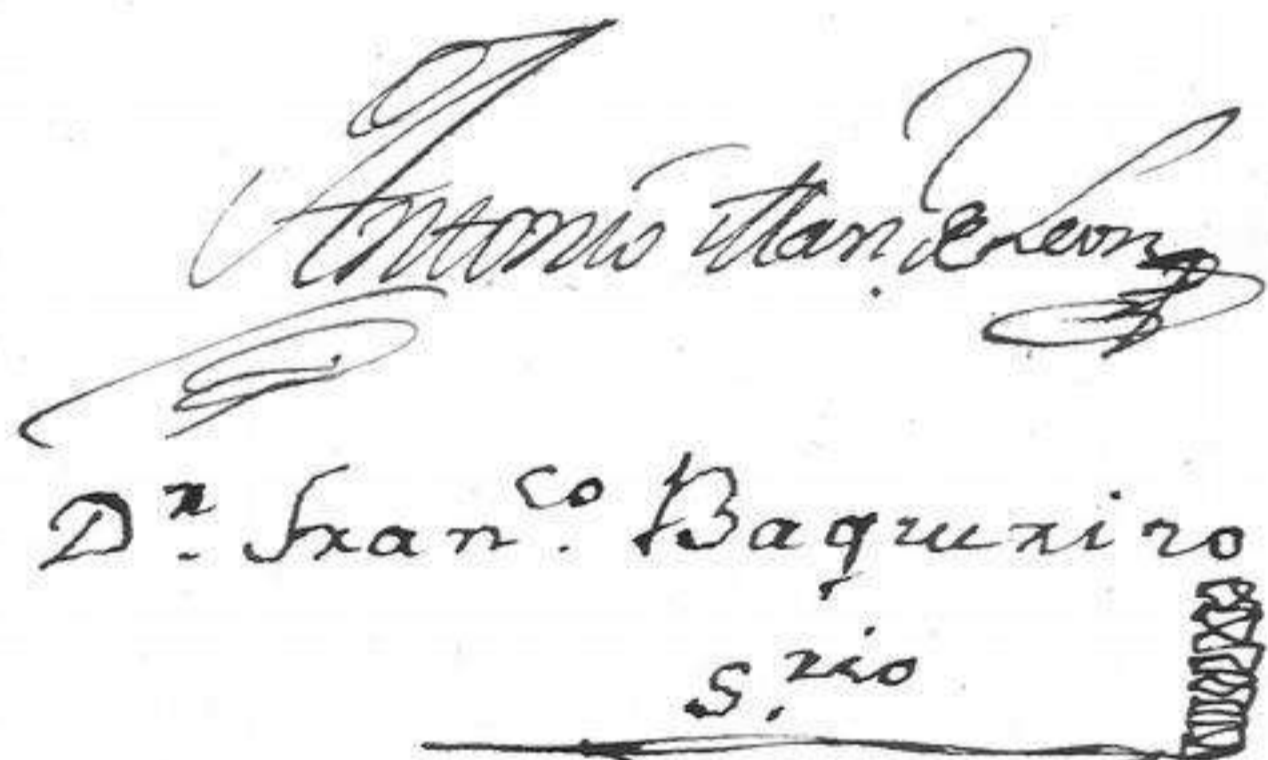 Antonio Man. de Leon
Dn. Franco. Baqueriro
S.rio